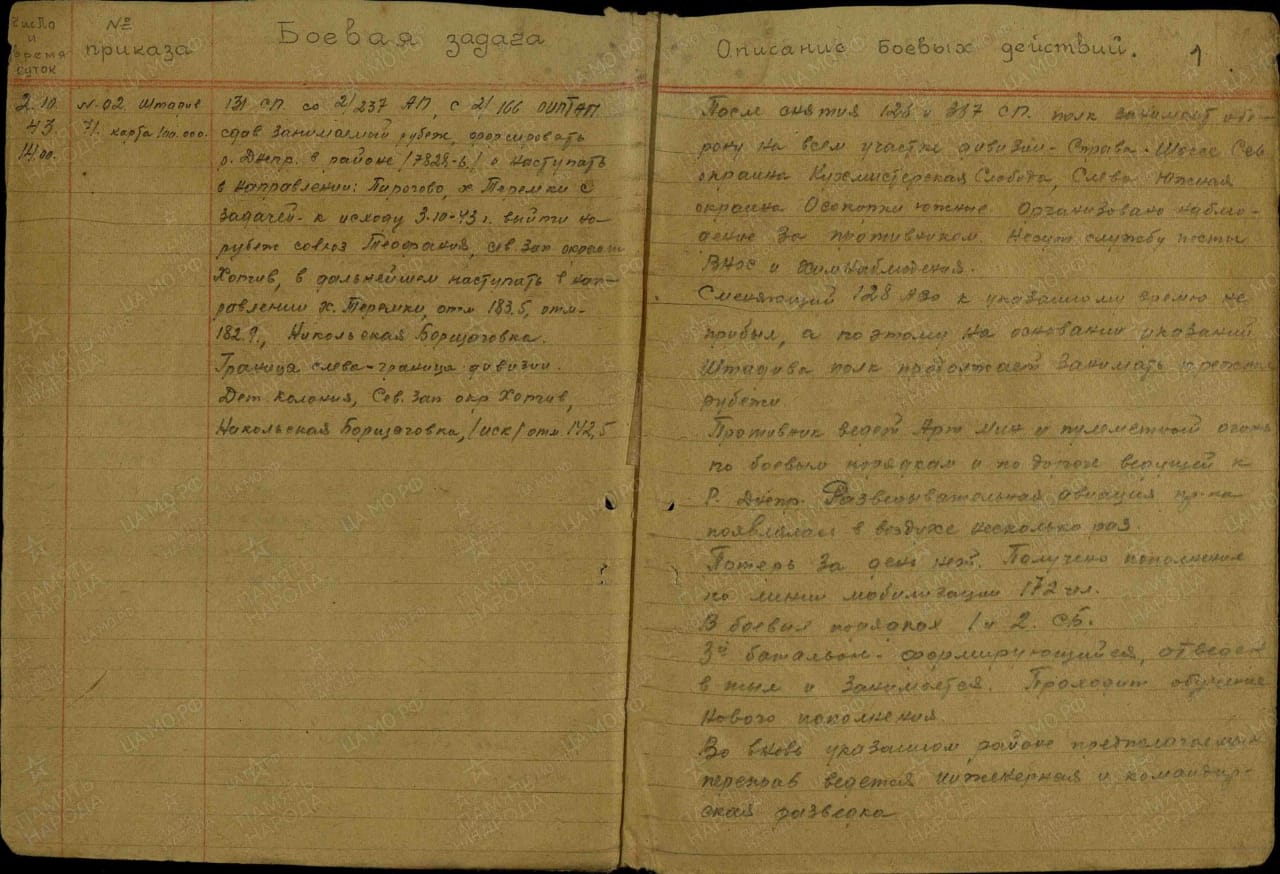 Число
и
время
суток
№
приказа
Боевая задача
2.10.
43.
14.00.
N.02 Штадив
71. карта 100.000.
131 СП. со 2/237 АП, с 2/166 ОИПТАП
сдав занимаемый рубеж, форсировать
р. Днепр. в районе /7828-б/ и наступать
в направлении: Пирогово, х Теремки с
задачей- к исходу 3-10-43 г. выйти на
рубеж совхоз Теофания, сев. зап окраина
Хотчив, в дальнейшем наступать в нап-
равлении х. Теремки, отм 183.5, отм-
182.9, Никольская Борщаговка.
Граница слева-граница дивизии.
Дет. Колония, Сев. Зап окр Хотчив,
Никольская Борщаговка, /иск/ отм. 142,5
Описание боевых действий. 1
После снятия 128 и 387 СП. полк занимает обо-
рону на всем участке дивизии- Справа- Шоссе Сев
окраина Кухмистерская Слобода, Слева Южная
окраина Осокотки южные Организовано наблю-
дение за противником. Несут службу посты
ВНОС и Химнаблюдения.
Сменяющий 128 АЗО к указанному времю не
прибыл, а поэтому на основании указаний
Штадива полк продолжает занимать прежние
рубежи.
Противник ведет Арт Мин и пулеметный огонь
по боевым порядкам и по дороге ведущей к
Р. Днепр. Разведывательная авиация пр-ка
появлялась в воздухе несколько раз.
Потерь за день нет. Получено пополнение
по линии мобилизации 172 чел.
В боевых порядках 1 и 2. СБ.
3й батальон- формирующийся, отведен
в тыл и занимается. Проходит обучение
нового пополнения
Во вновь указанном районе предполагаемых
переправ ведется инженерная и командир-
ская разведка